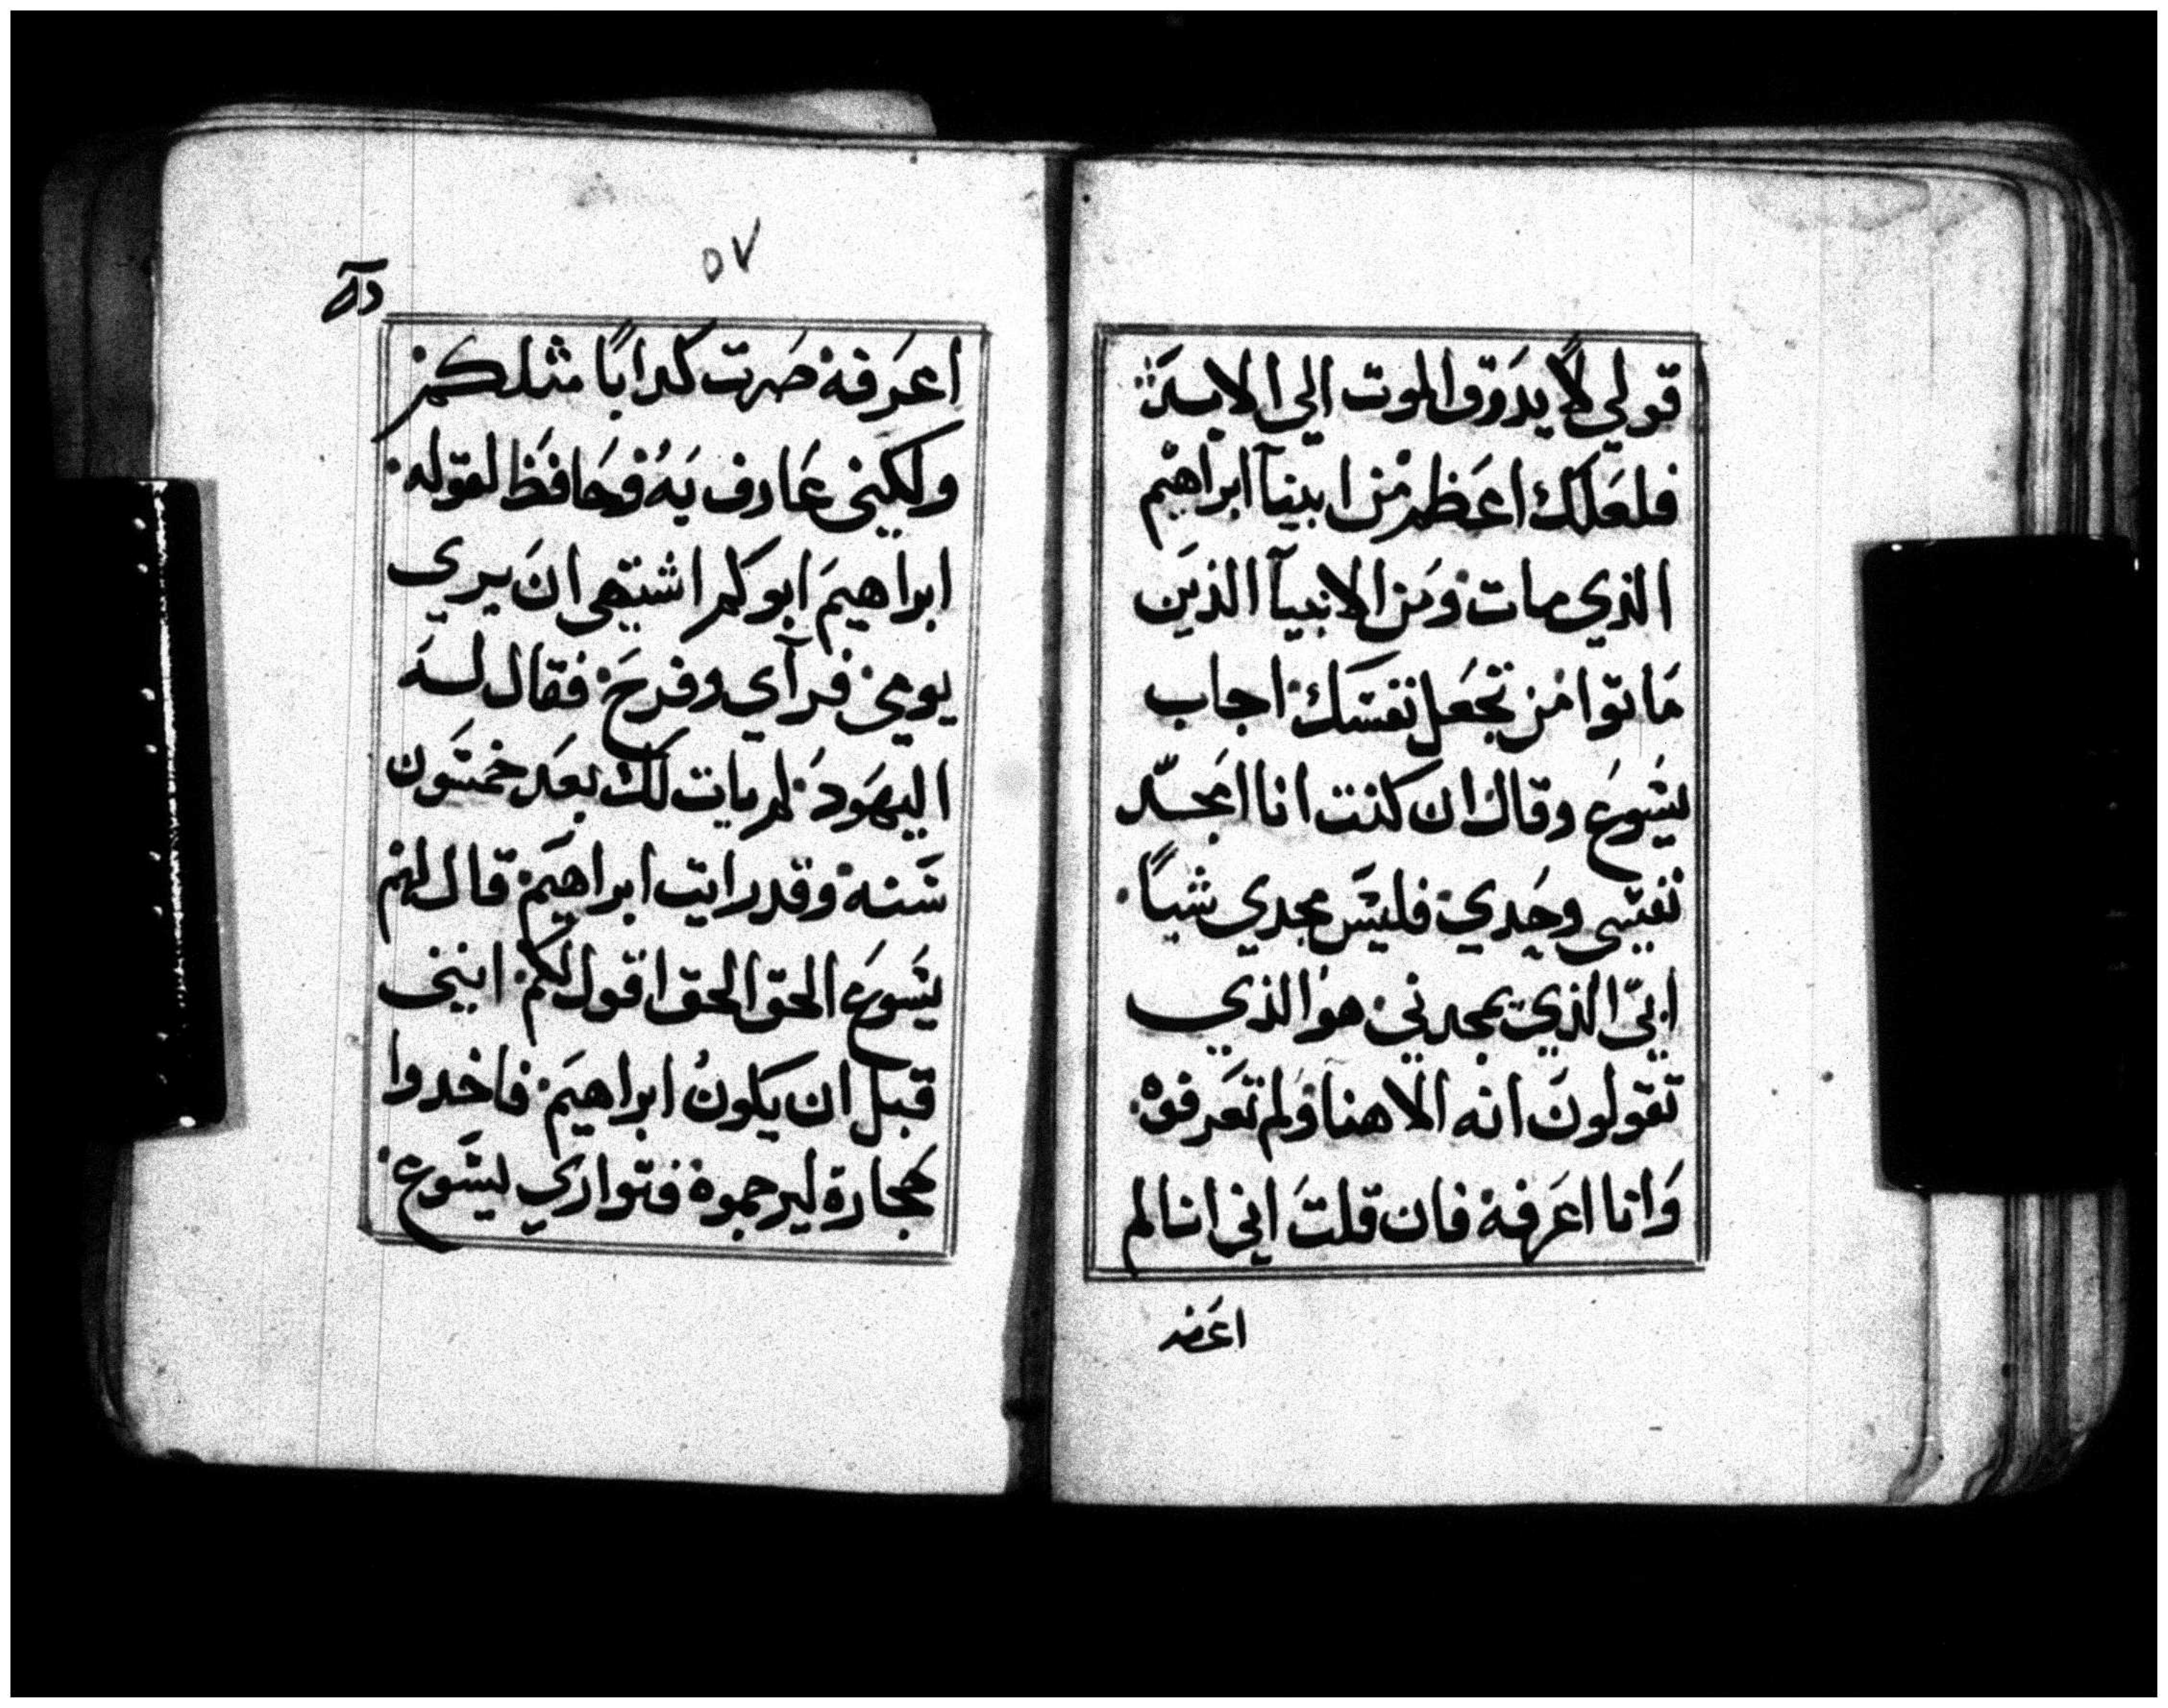 قولي لاً يدَوق الموت الي الابد
فلعَلك اعَظم من ابينآ ابراهيم
الذي مات ومن الانبيآ الذين
مَاتوا من تجعَل نفسَك اجاب
يسَوعَ وقال ان كنت انا امجّد
نفسي وحَدي فليسَ مجدي شياً
ابيّ الذي يمجدني هو الذي
تقولونَ انه الاهنا ولم تعَرفوه
وَانا اعَرفه فان قلتَ اني انا لم
اعَرفه
٥٧
اعَرفه صَرت كدابًا مثلكم
ولكني عَارف بَهُ وحَافظ لقوله
ابراهيمَ ابوكم اشتهي انَ يري
يومي فرآي وفرحَ فقال له
اليهَود لم يات لك بعَد خمسَون
سَنه وقد رايت ابراهيمَ قال لهم
يسَوعَ الحق الحق اقول لكم انني
قبل ان يكونُ ابراهيمَ فاخدوا
حجارة ليرجموه فتواري يسَوع